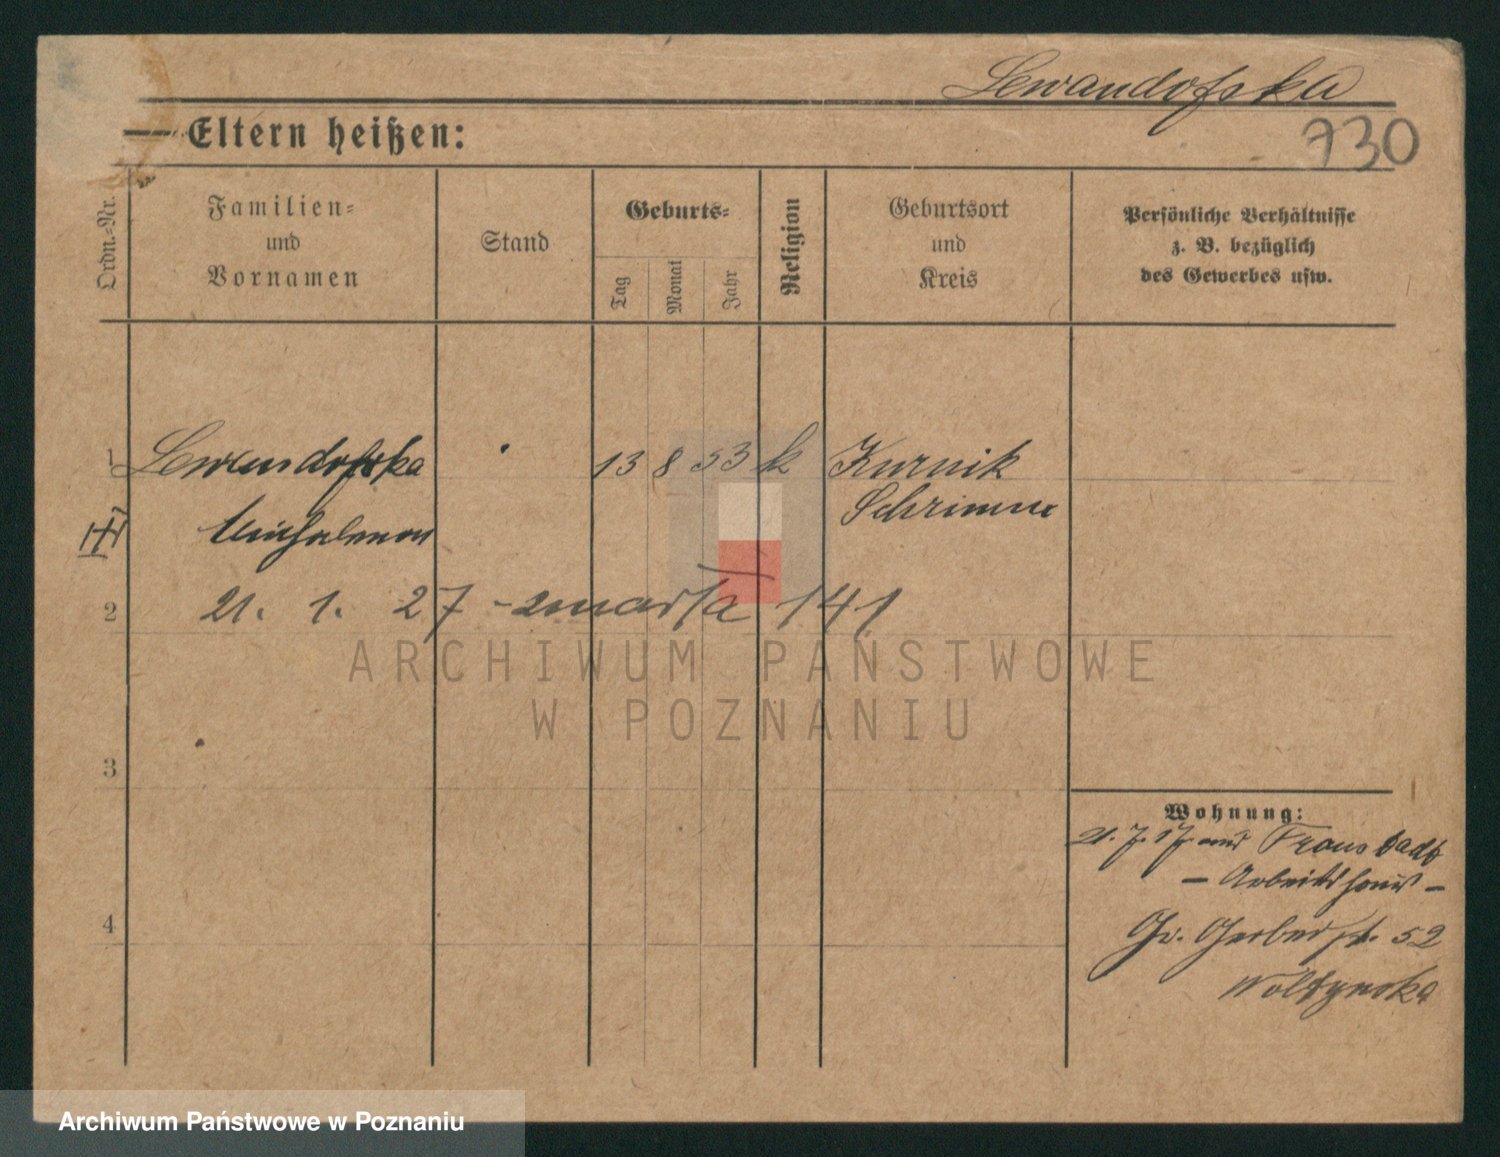 Lewandofska
730
Eltern heißen:
Ordn.-Nr.
Familien-
und
Vornamen
Stand
Geburts-
Tag
Monat
Jahr
Religion
Geburtsort
und
Kreis
Persönliche Verhältnisse
z. B. bezüglich
des Gewerbes usw.
1 Lewandofska 13 8 53 k Kurnik
Schrimm
2 21. 1. 27 - zmarła 141
ARCHIWUM PAŃSTWOWE
W POZNANIU
3
Wohnung:
21. 7. 17 aus Fraustadt
- Arbeitshaus -
4
Gr. Gerberst. 52
Archiwum Państwowe w Poznaniu